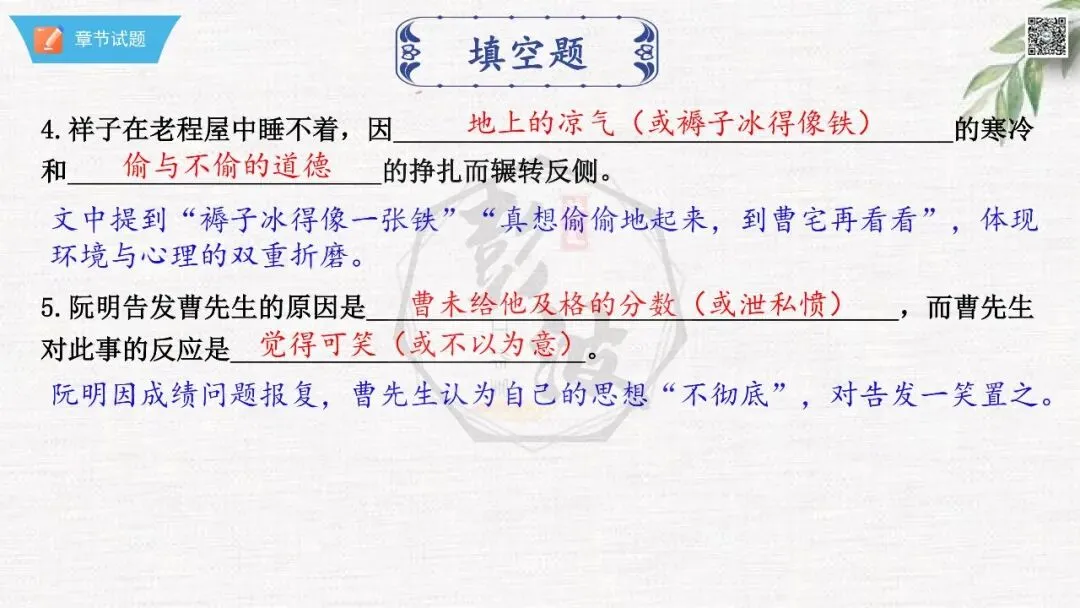 章节试题
填空题
4.祥子在老程屋中睡不着，因____地上的凉气（或褥子冰得像铁）____的寒冷
和____偷与不偷的道德____的挣扎而辗转反侧。
文中提到“褥子冰得像一张铁”“真想偷偷地起来，到曹宅再看看”，体现
环境与心理的双重折磨。
5.阮明告发曹先生的原因是____曹未给他及格的分数（或泄私愤）____，而曹先生
对此事的反应是____觉得可笑（或不以为意）____。
阮明因成绩问题报复，曹先生认为自己的思想“不彻底”，对告发一笑置之。